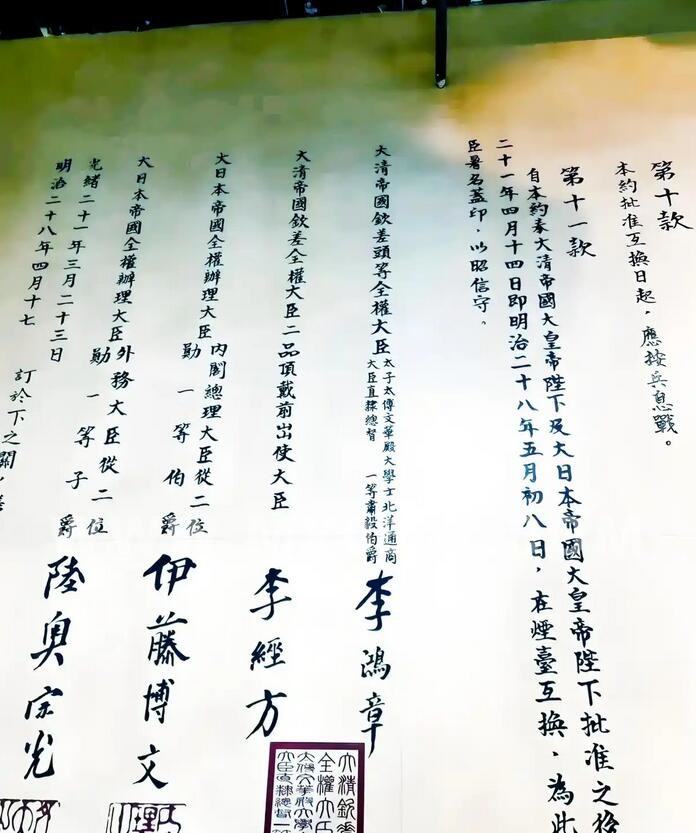 第十款
本約批准互換日起，應按兵息戰。
第十一款
自本約奉大清帝國大皇帝陛下及大日本帝國大皇帝陛下批准之後
二十一年四月十四日即明治二十八年五月初八日，在煙臺互換，為此
臣署名蓋印，以昭信守。
大清帝國欽差頭等全權大臣
太子太傅文華殿大學士北洋通商
大臣直隸總督 一等肅毅伯爵
李鴻章
大清帝國欽差全權大臣二品頂戴前出使大臣
李經方
大日本帝國全權辦理大臣
內閣總理大臣從二位
勛一等伯爵
伊藤博文
大日本帝國全權辦理大臣
外務大臣從二位
勛一等子爵
陸奧宗光
光緒二十一年三月二十三日
明治二十八年四月十七
訂於下之關，
大清欽差
全權大臣